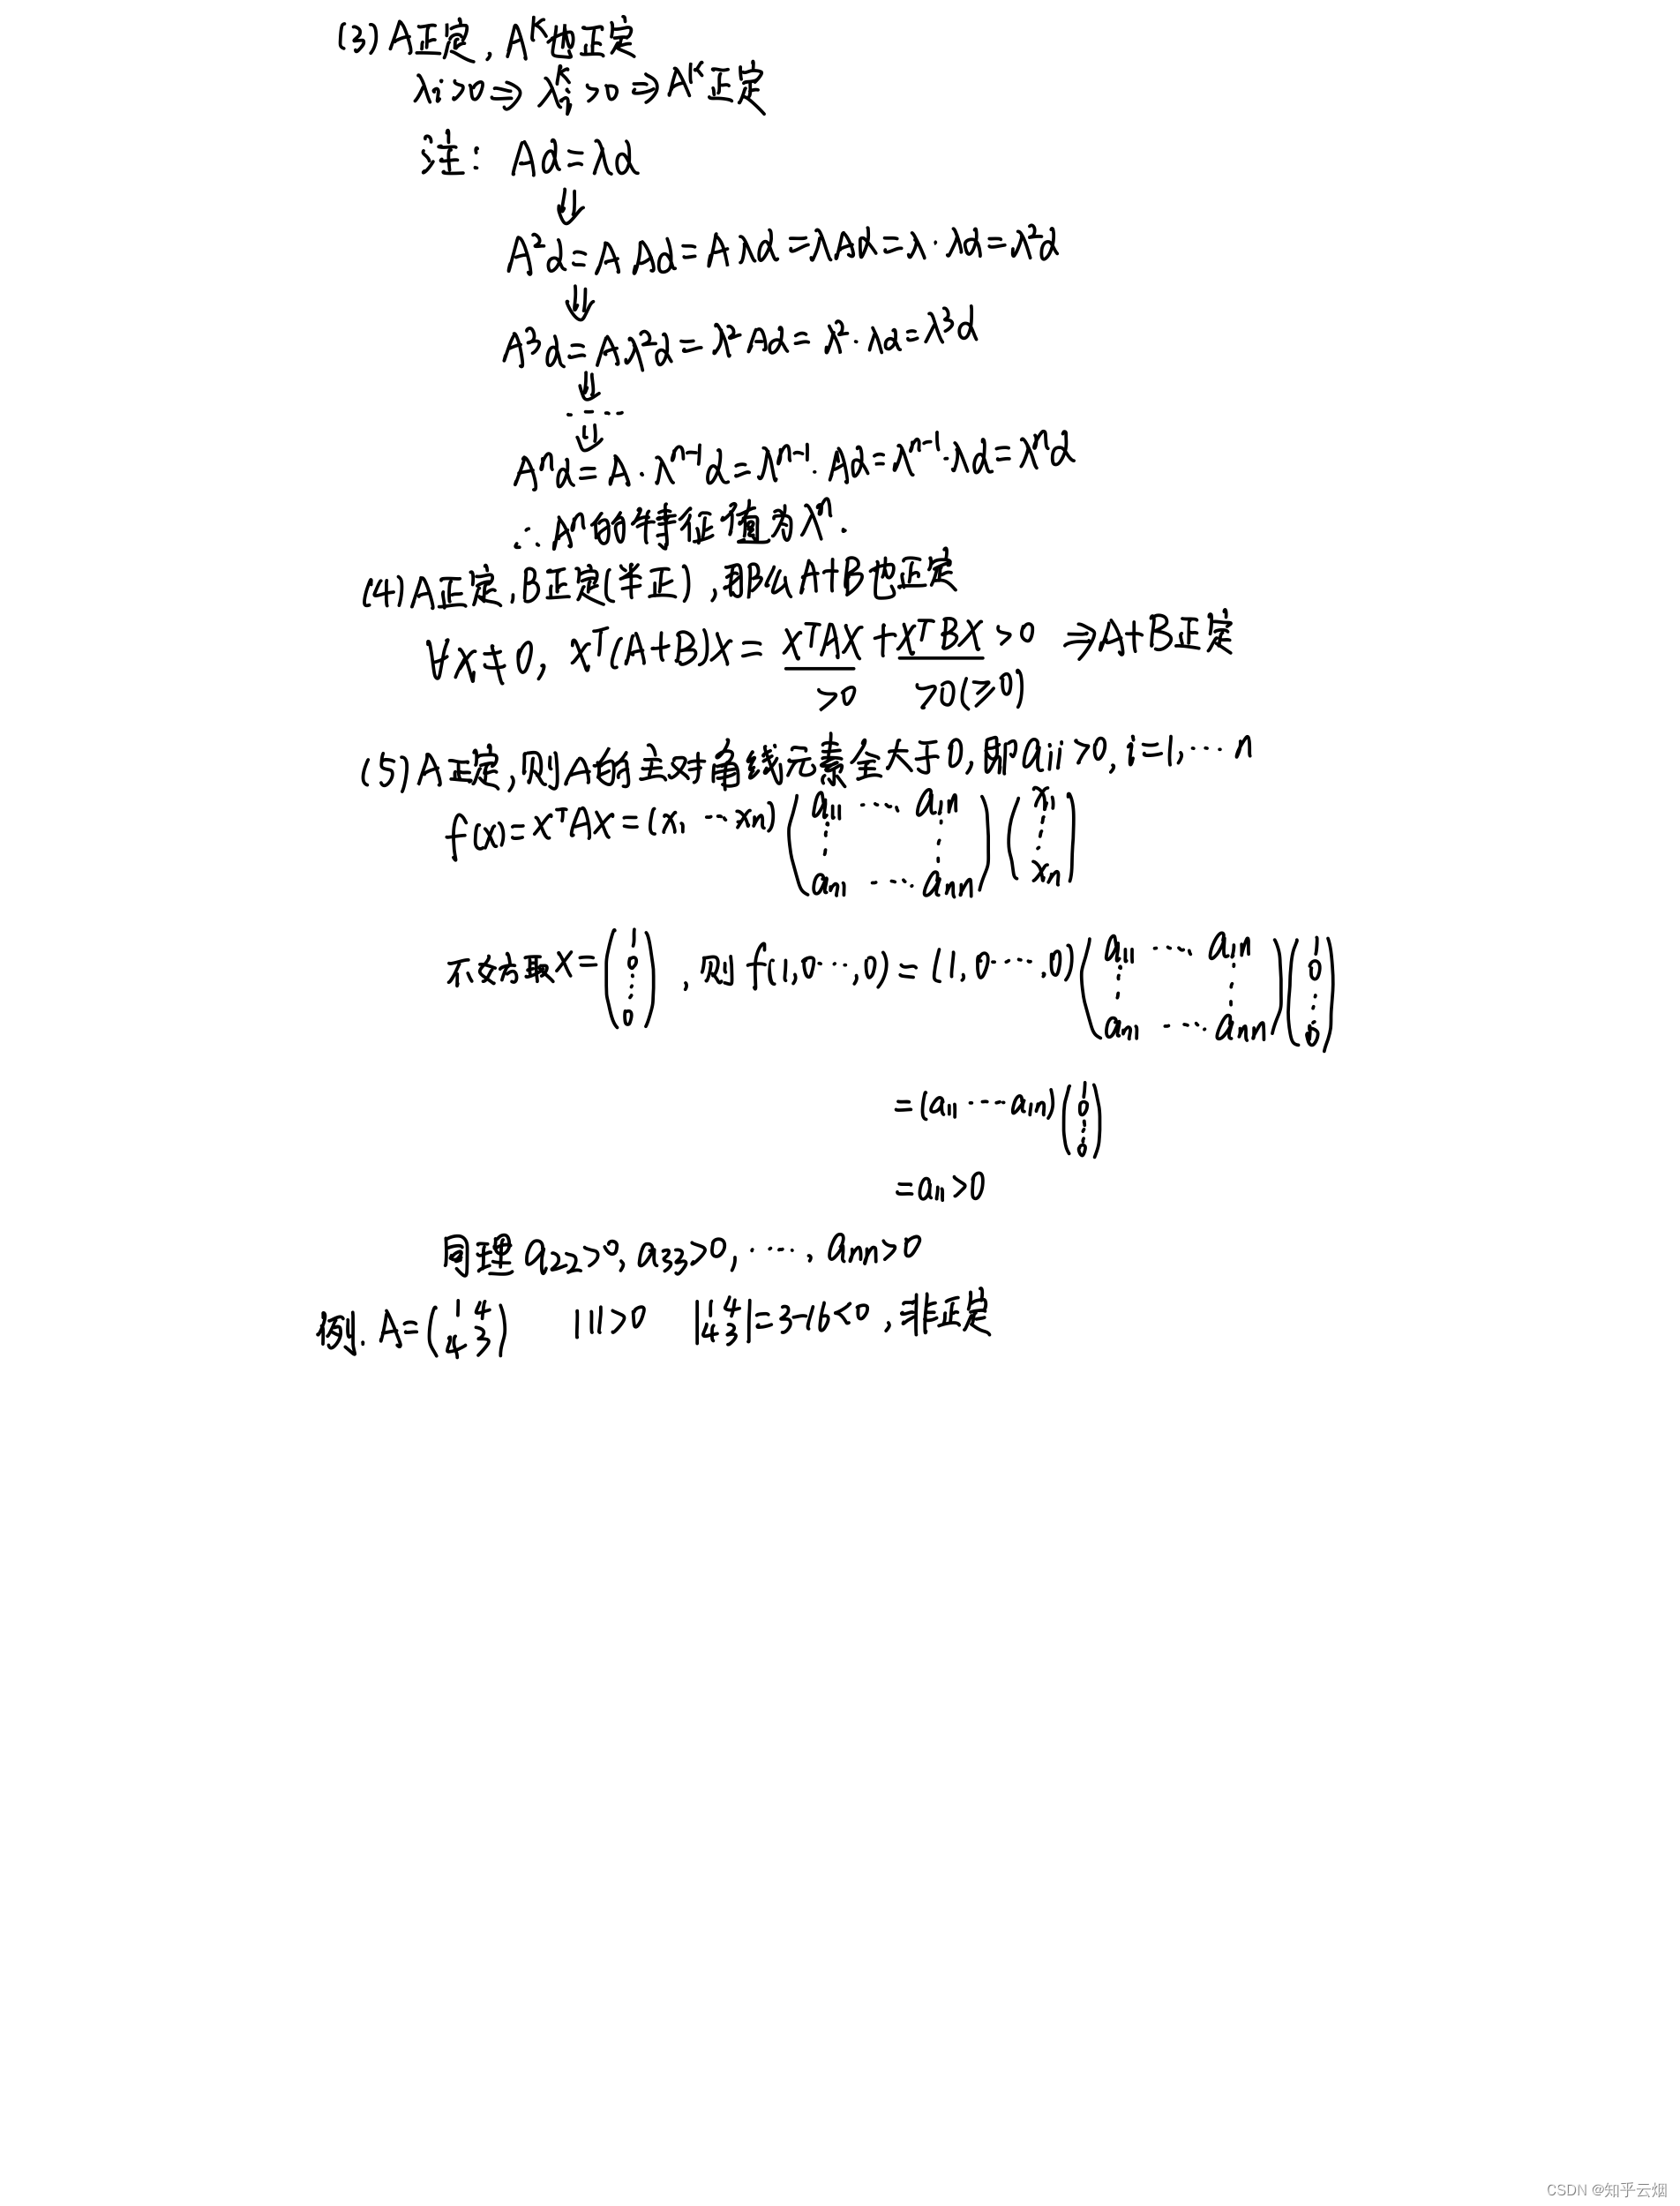 (3) A正定, A^K也正定
λi>0⇒ λi^K>0⇒A^K正定
注: Aα=λα
⇓
A²α=AAα=Aλα=λAα=λ·λα=λ²α
⇓
A³α=Aλ²α=λ²Aα=λ²·λα=λ³α
⇓
····
⇓
Aⁿα=A·λⁿ⁻¹α=λⁿ⁻¹·Aα=λⁿ⁻¹·λα=λⁿα
∴Aⁿ的特征值为λⁿ.
(4) A正定,B正定(半正),那么A+B也正定
∀x≠0, xᵀ(A+B)x = xᵀAx + xᵀBx >0 ⇒A+B正定
>0 >0(≥0)
(5) A正定,则A的主对角线元素全大于0,即aii>0, i=1,⋯n
f(x)=xᵀAx=(x₁ ⋯xn) (a11 ⋯ a1n ⋮ ⋮ an1 ⋯ ann) (x₁ ⋮ xn)
不妨取x= (1 0 ⋮ 0) ,则 f(1,0⋯,0) = (1,0⋯,0) (a11 ⋯ a1n ⋮ ⋮ an1 ⋯ ann) (1 0 ⋮ 0)
=(a11 ⋯a1n) (1 0 ⋮ 0)
=a11>0
同理 a22>0, a33>0, ⋯, ann>0
例. A= (1 4 4 3) |1|>0 |1 4 4 3|=3-16<0,非正定
CSDN @知乎云烟